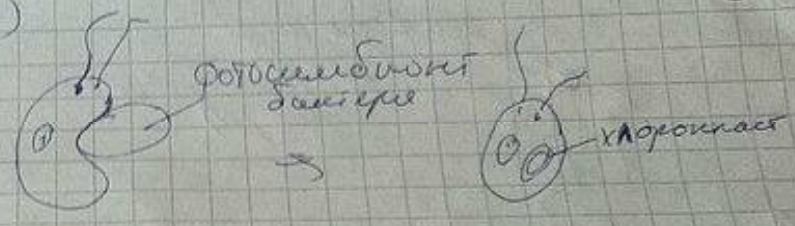 )
фотосимбионт
бактерия
хлоропласт